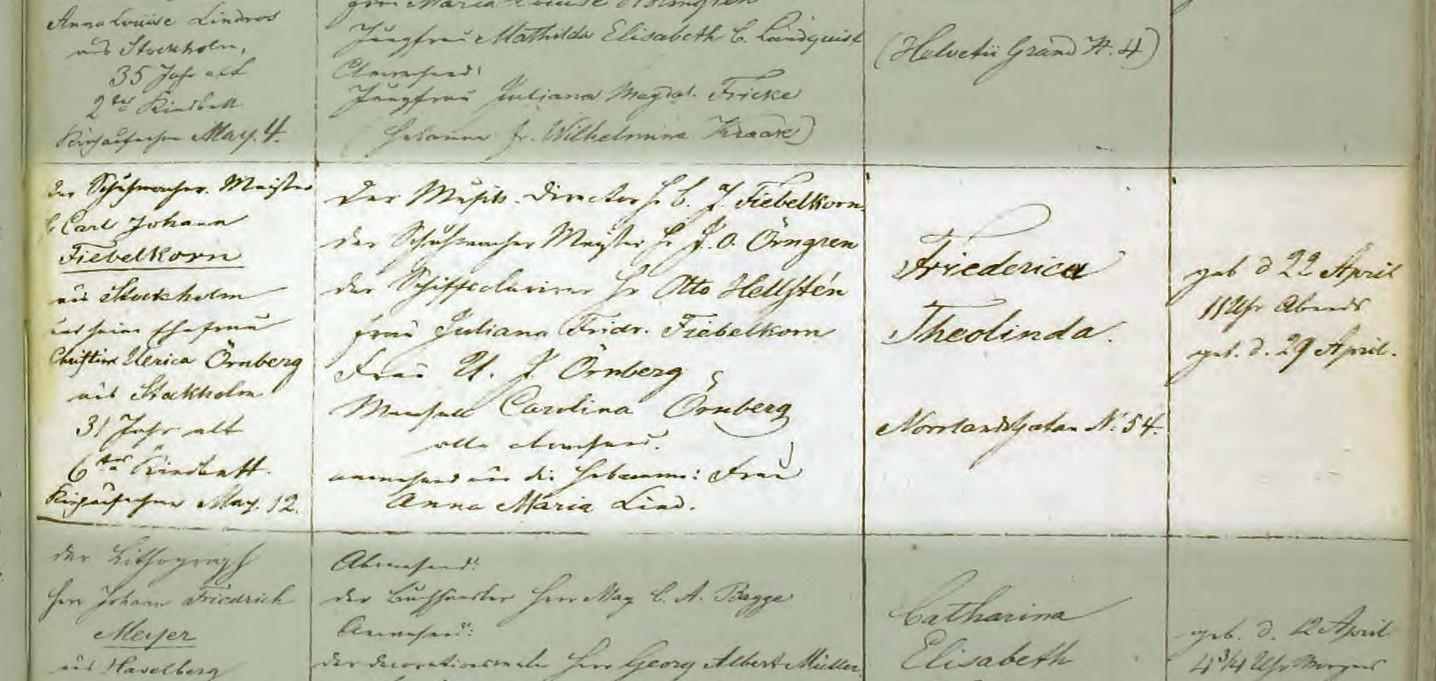 Anna Louise Lindros
aus Stockholm,
35 Jahr alt
2te Kindbett
May. 4.
Jungfrau Mathilda Elisabeth C. Landquist
Abwesend:
Jungfrau Juliana Magdal. Fricke
Hebamme fr. Wilhelmina
(Helvetii Gränd N. 4)
der Schuhmacher. Meister
H. Carl Johann
Fiebelkorn
aus Stockholm
und seine Ehefrau
Christina Ulrica Örnberg
aus Stockholm
31 Jahr alt
6te Kindbett.
May. 12.
der Musik-Director H. C. F. Fiebelkorn
der Schuhmacher Meister H. J. O. Örngren
der Hr Otto Hellstén
Frau Juliana Fridr. Fiebelkorn
Frau U. J. Örnberg
Mamsell Carolina Örnberg
alle abwesend.
anwesend die Hebamme: Frau
Anna Maria Lind.
Friederica
Theolinda.
Norrlandsgatan No 54.
geb d 22 April
11 Uhr Abends
get. d. 29 April.
der Lithograph
Herr Johann Friedrich
Meyer
aus Havelberg
Abwesend:
der Buchhändler Herr Mag C. A. Bagge
Anwesend:
der Decorationsmaler Herr Georg Albert Müller
Catharina
Elisabeth
geb. d. 12 April
4 3/4 Uhr Morgens